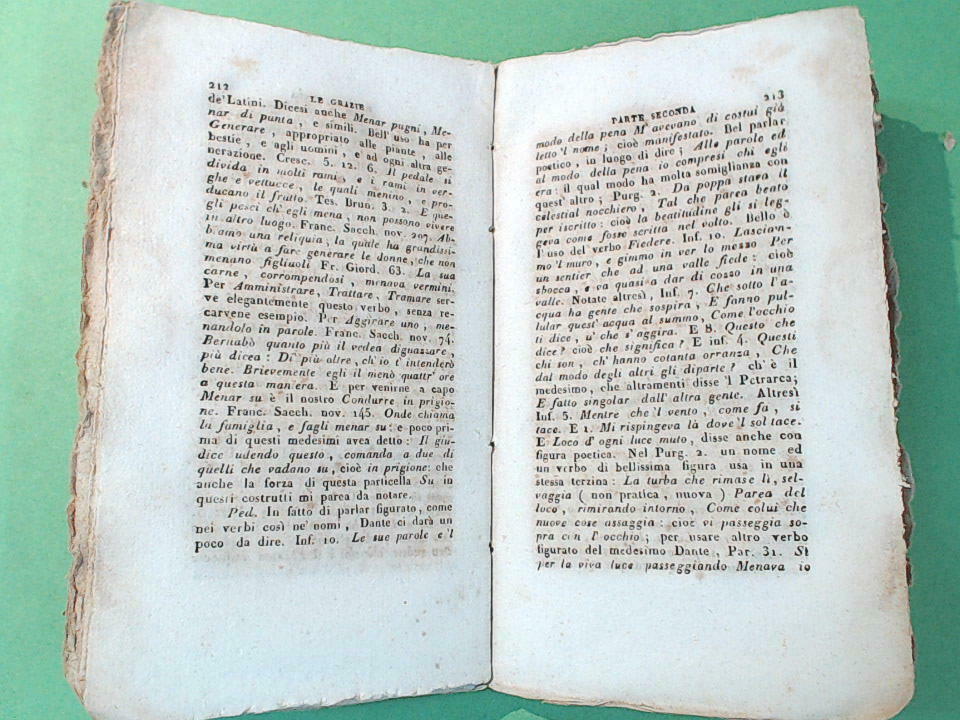 212
LE GRAZIE
de' Latini. Dicesi anche Menar pugni, Me-
nar di punta, e simili. Bell' uso ha per
Generare, appropriato alle piante, alle
bestie, e agli uomini, e ad ogni altra ge-
nerazione. Cresc. 5. 12. 6. Il pedale si
divida in molti rami, e i rami in ver-
ghe e vettucce, le quali menino, e pro-
ducano il frutto. Tes. Brun. 3. 2. E que-
gli pesci ch' egli mena, non possono vivere
in altro luogo. Franc. Sacch. nov. 207. Ab-
biamo una reliquia, la quale ha grandissi-
ma virtù a fare generare le donne, che non
menano figliuoli Fr. Giord. 63. La sua
carne, corrompendosi, menava vermini.
Per Amministrare, Trattare, Tramare ser-
ve elegantemente questo verbo, senza re-
carvene esempio. Per Aggirare uno, me-
nandolo in parole. Franc. Sacch. nov. 74.
Bernabò quanto più il vedea diguazzare,
più dicea: Di più oltre, ch' io t' intenderò
bene. Brievemente egli il menò quattr' ore
a questa maniera. E per venirne a capo
Menar su è il nostro Condurre in prigio-
ne. Franc. Sacch. nov. 145. Onde chiama
la famiglia, e fagli menar su: e poco pri-
ma di questi medesimi avea detto: Il giu-
dice udendo questo, comanda a due di
quelli che vadano su, cioè in prigione: che
anche la forza di questa particella Su in
questi costrutti mi parea da notare.
Ped. In fatto di parlar figurato, come
nei verbi così ne' nomi, Dante ci darà un
poco da dire. Inf. 10. Le sue parole e 'l
PARTE SECONDA
213
modo della pena M' avevano di costui già
letto 'l nome; cioè manifestato. Bel parlar
poetico, in luogo di dire; Alle parole ed
al modo della pena io compresi chi egli
era: il qual modo ha molta somiglianza con
quest' altro; Purg. 2. Da poppa stava il
celestial nocchiero, Tal che parea beato
per iscritto: cioè la beatitudine gli si leg-
geva come fosse scritta nel volto. Bello è
l' uso del verbo Fiedere. Inf. 10. Lasciam-
mo 'l muro, e gimmo in ver lo mezzo Per
un sentier che ad una valle fiede: cioè
sbocca, e va quasi a dar di cozzo in una
valle. Notate altresì, Inf. 7. Che sotto l' a-
cqua ha gente che sospira, E fanno pul-
lular quest' acqua al summo, Come l' occhio
ti dice, u' che s' aggira. E 8. Questo che
dice? cioè che significa? E inf. 4. Questi
chi son, ch' hanno cotanta orranza, Che
dal modo degli altri gli diparte? ch' è il
medesimo, che altramenti disse 'l Petrarca;
E fatto singolar dall' altra gente. Altresì
Inf. 5. Mentre che 'l vento, come fa, si
tace. E 1. Mi rispingeva là dove 'l sol tace.
E Loco d' ogni luce muto, disse anche con
figura poetica. Nel Purg. 2. un nome ed
un verbo di bellissima figura usa in una
stessa terzina: La turba che rimase lì, sel-
vaggia ( non pratica, nuova ) Parea del
loco, rimirando intorno, Come colui che
nuove cose assaggia: cioè vi passeggia so-
pra con l' occhio; per usare altro verbo
figurato del medesimo Dante, Par. 31. Sì
per la viva luce passeggiando Menava io